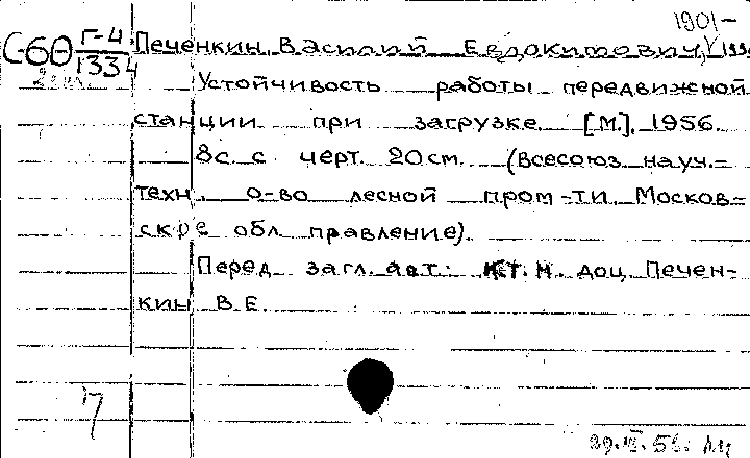 1901-
С-60 Г-4/1334 Печенкин, Василий Евдокимович,
Устойчивость работы передвижной
станции при загрузке. [М]. 1956.
8с. с черт. 20см. (Всесоюз науч.-
техн. о-во лесной пром-ти. Москов-
ское обл правление).
Перед загл. авт: к.т.н. доц. Печен-
кин В. Е.
7